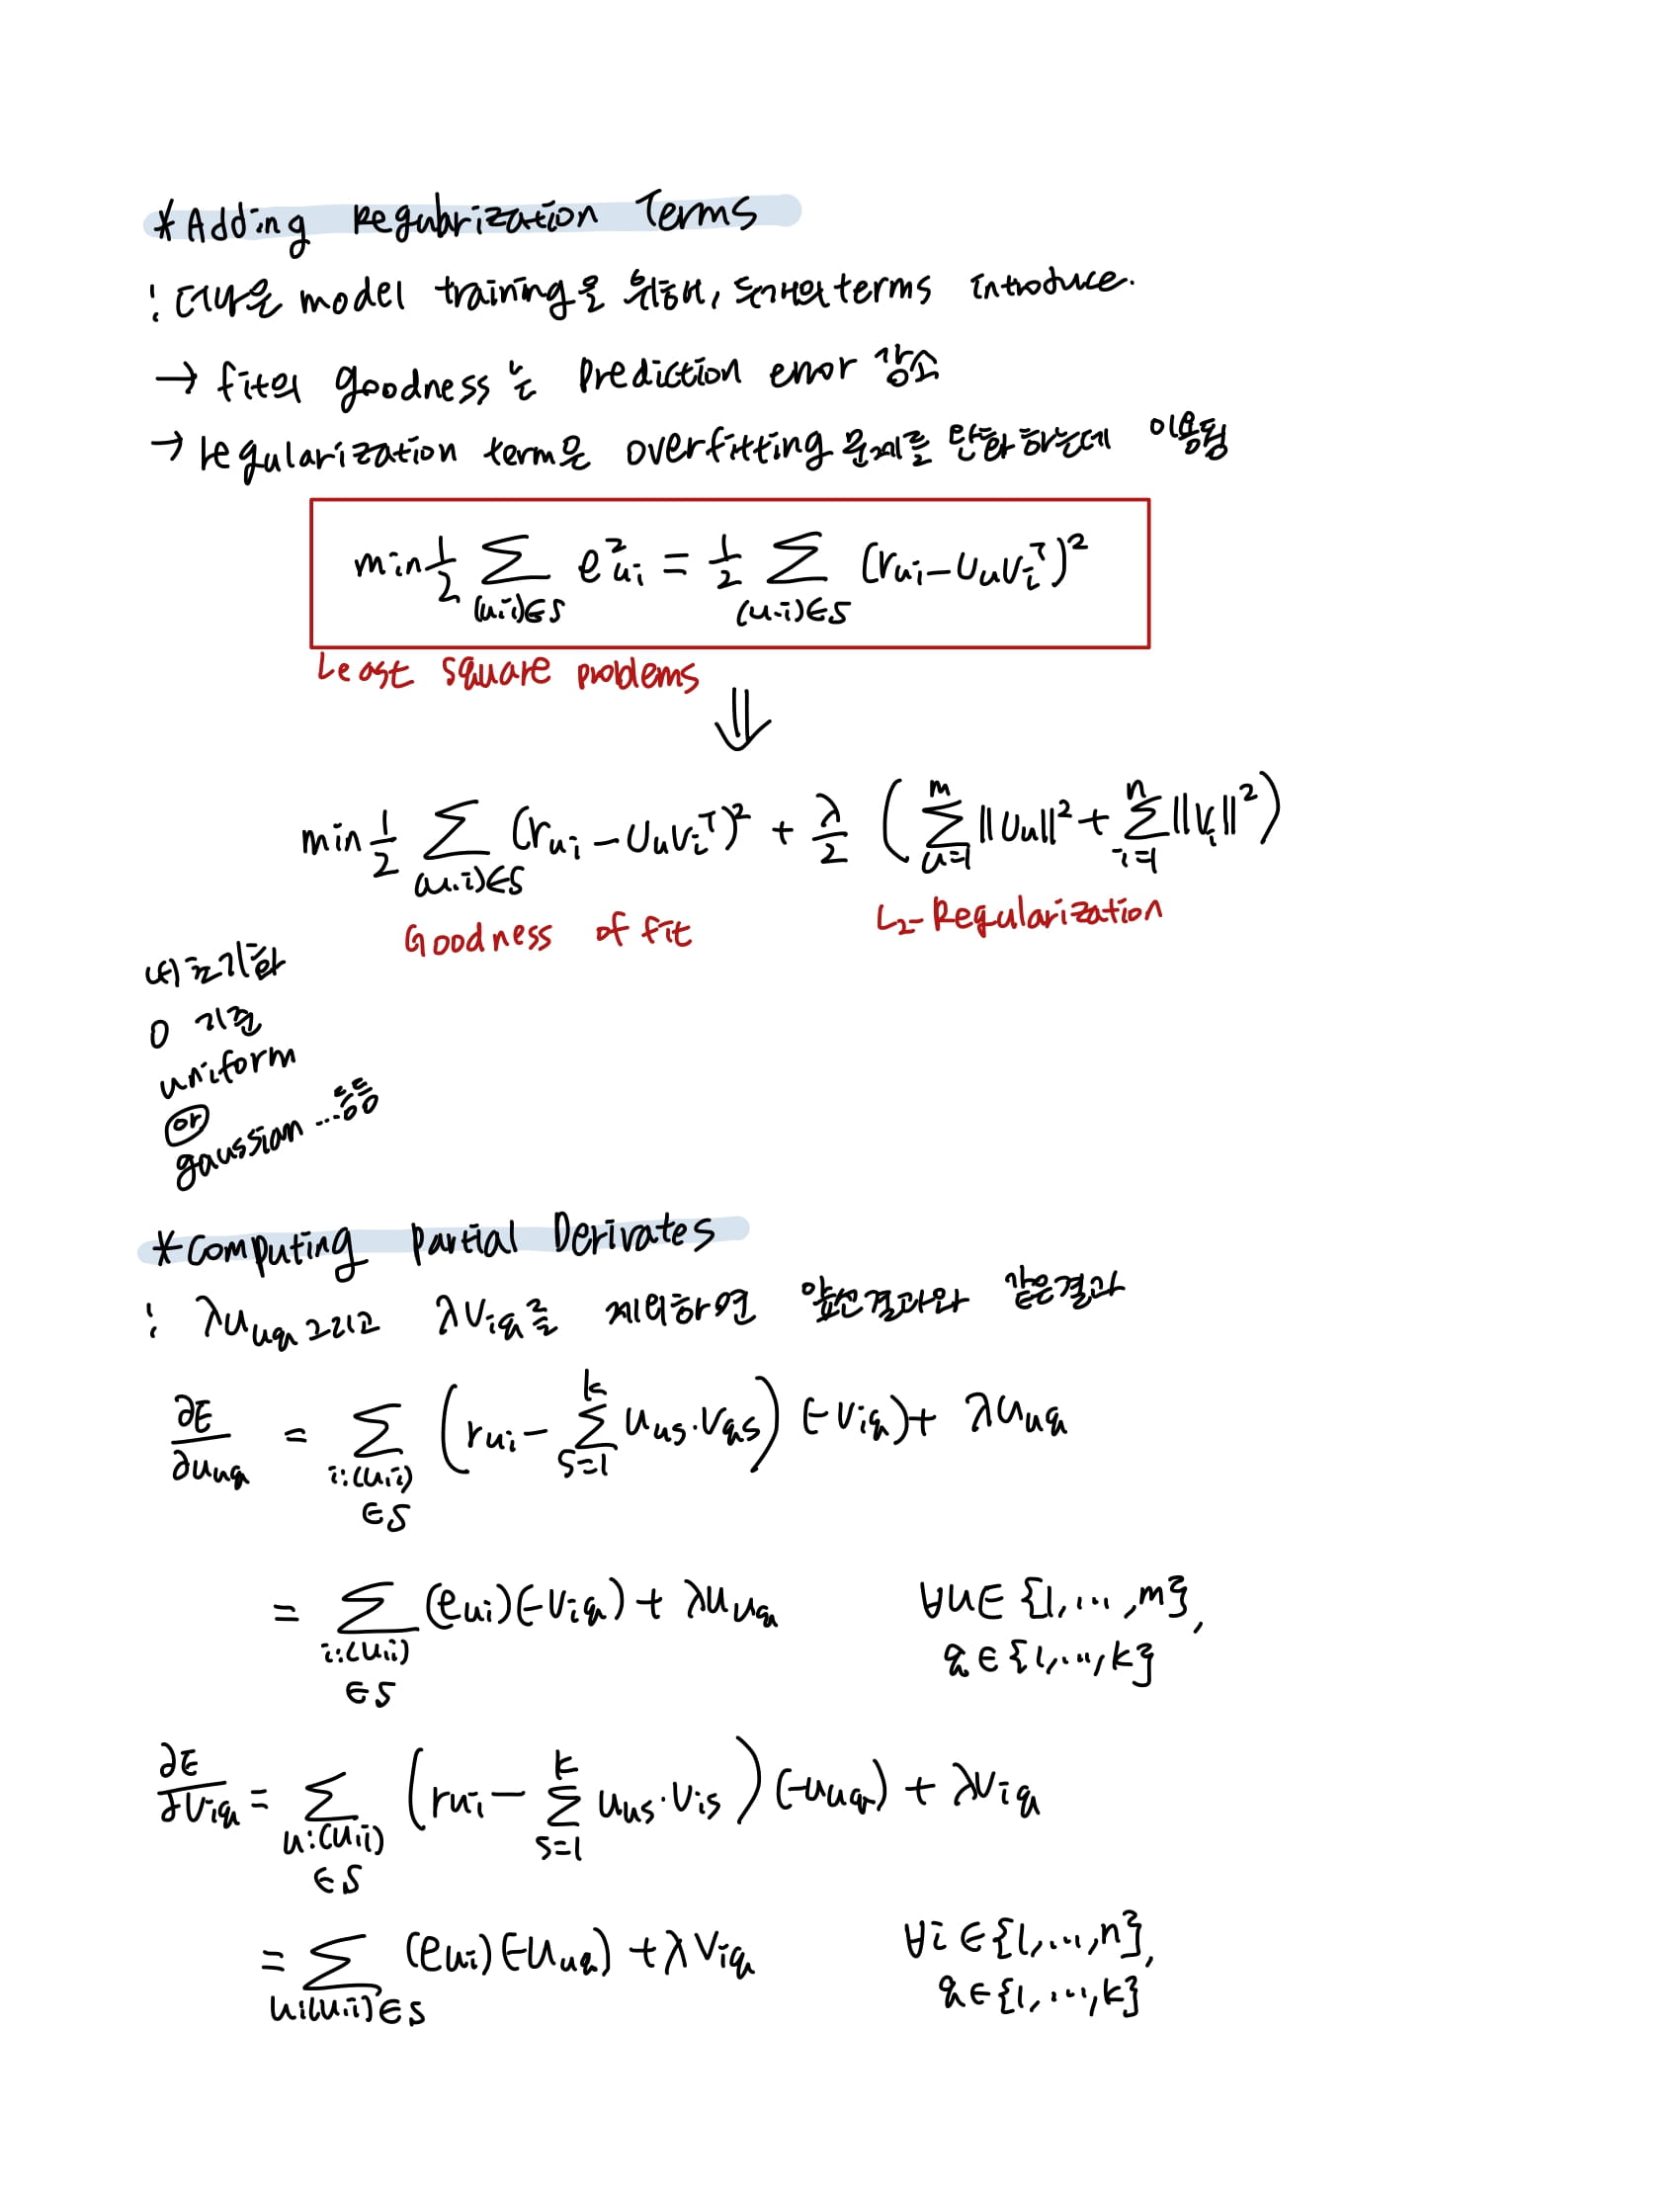 *Adding Regularization Terms
: 더나은 model training을 위해서, 두개의 terms introduce.
→ fit의 goodness는 prediction error 감소
→ regularization term은 overfitting 문제를 완화하는데 이용됨
min 1/2 ∑_{(u,i)∈S} e²_{ui} = 1/2 ∑_{(u,i)∈S} (r_{ui} - U_u V_i^T)²
Least square problems
⇓
min 1/2 ∑_{(u,i)∈S} (r_{ui} - U_u V_i^T)² + λ/2 (∑_{u=1}^{m} ||U_u||² + ∑_{i=1}^{n} ||V_i||²)
Goodness of fit L2-Regularization
초기화
0
uniform
or
gaussian ...등등
*Computing Partial Derivates
: λu_{uq} 그리고 λv_{iq}를 제외하면 앞선결과와 같은결과
∂E/∂u_{uq} = ∑_{i:(u,i)∈S} (r_{ui} - ∑_{s=1}^{k} u_{us}·v_{qs}) (-v_{iq}) + λu_{uq}
= ∑_{i:(u,i)∈S} (e_{ui})(-v_{iq}) + λu_{uq} ∀u∈{1,...,m},
q∈{1,...,k}
∂E/∂v_{iq} = ∑_{u:(u,i)∈S} (r_{ui} - ∑_{s=1}^{k} u_{us}·v_{is}) (-u_{uq}) + λv_{iq}
= ∑_{u:(u,i)∈S} (e_{ui})(-u_{uq}) + λv_{iq} ∀i∈{1,...,n},
q∈{1,...,k}